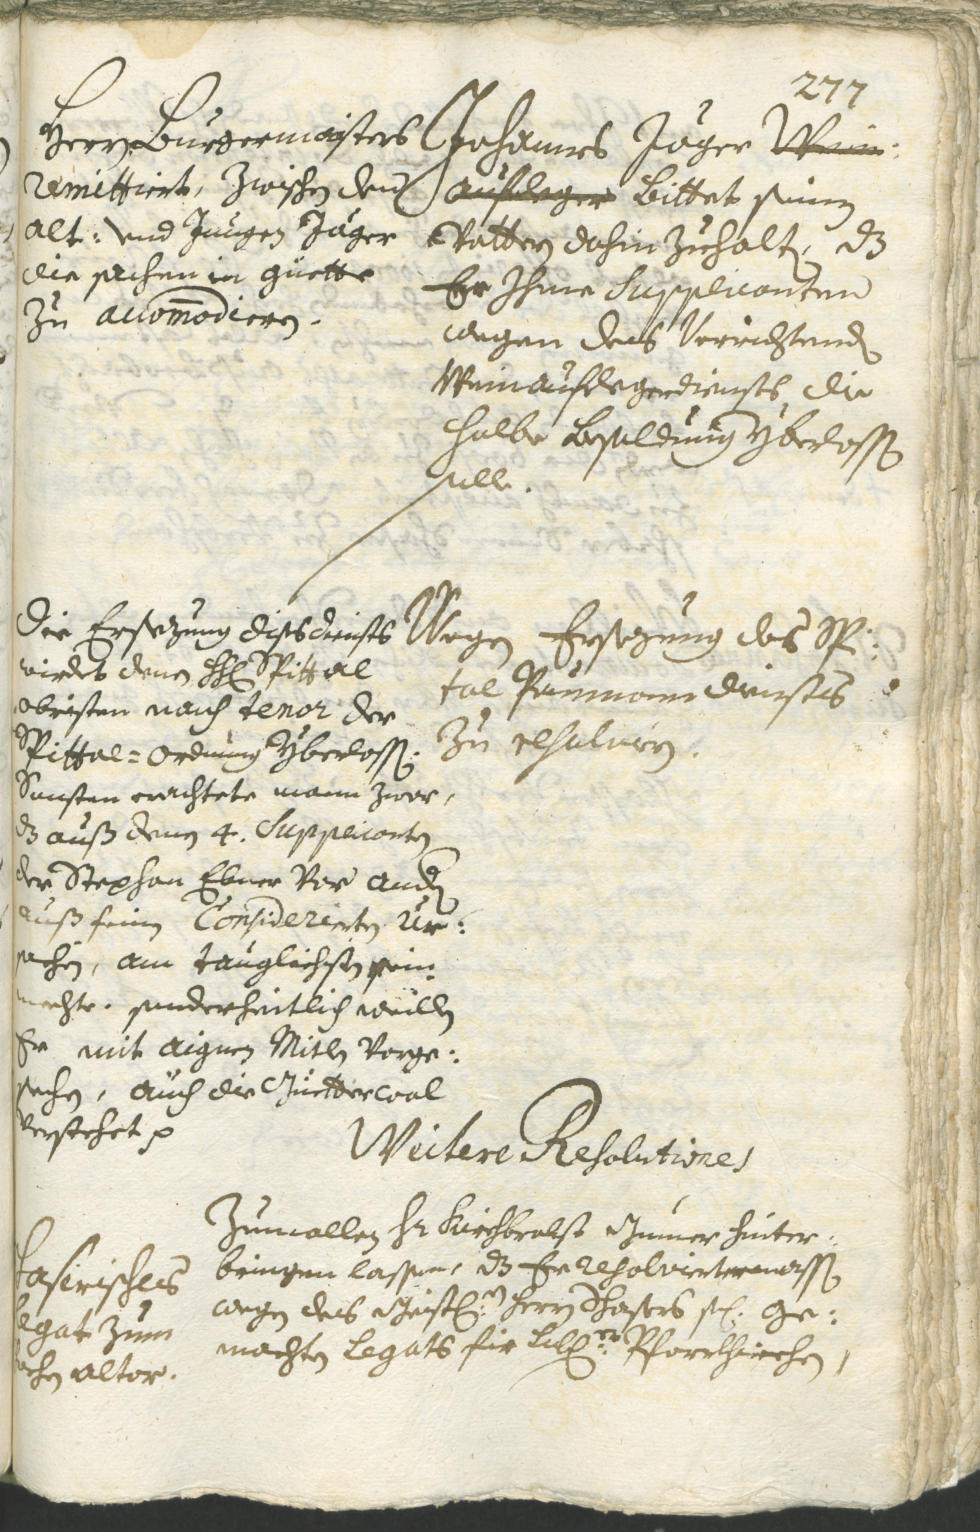 277
Herrn Burgermaisters
remittiert, zwischen dem
alt: und Jungen Jäger
die sachen in güette
zu accom̅odieren.
Johannes Jäger Wein:
aufleger bittet seinen
Vattern dahin zuhalt, dz
Er Ihme Supplicanten
wegen des Verrichtend
Weinauflegerdiensts die
halbe besoldung yberlass
solle.
Die Ersezung diss diensts
wirdet denen Spittal
obristen nach tenor der
Spittal=ordnung yberlass:
Sonsten erachtete mann zwar,
dz auß denen 4. Supplicanten
der Stephan Ebner vor and
auß seinen Considerierten Ur:
sachen, am tauglichisten sein
mechte. sonderheitlich weillen
Er mit aignen Mitlen vorge:
sechen, auch die
verstehet
Wegen Ersezung des Spi:
tal Paumanns diensts
zu resolvieren.
Weitere Resolutiones
legat zum
hochen altar.
Zumallen hr Kirchbrobst hinter:
bringen lassen, dz Er resolviertermass
wegen des Geistl: herrn sel. ge:
machten Legats für Pfarrkirchen,